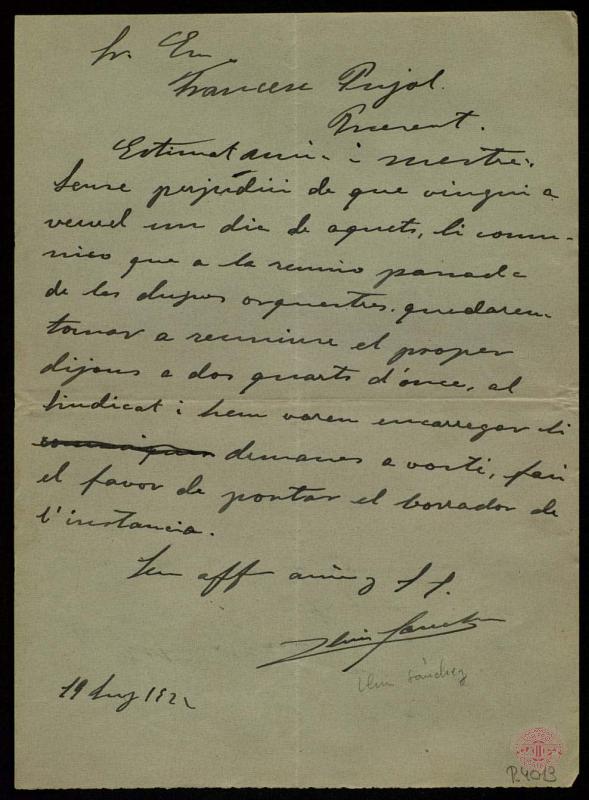 Sr. En
Francesc Pujol.
Present.
Estimat amic i mestre:
Sense perjudici de que vingui a
veurel un dia de aquets, li comu-
nico que a la reunio passada
de les dugues orquestres. quedarem
tornar a reuniure el proper
dijous a dos quarts d'once, al
Sindicat i hem varen encarregar li
demanes a vosté, fasi
el favor de portar el borrador de
l'instancia.
Seu affm amic y S. S.
Lluis Sanchez
Lluis Sánchez
19 Juny 192
P.4013